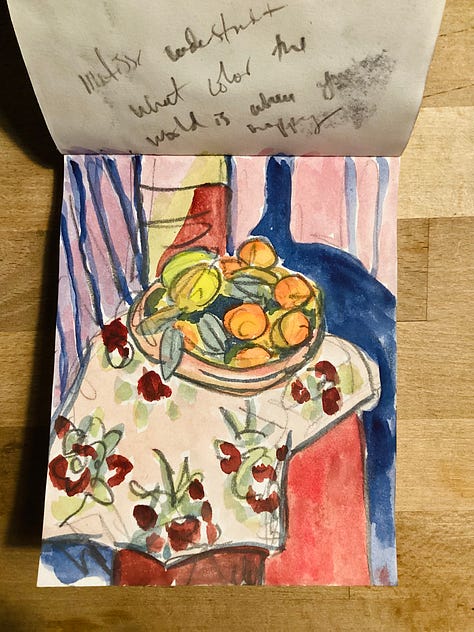 Matisse understood
what color the
world is when you're
happy